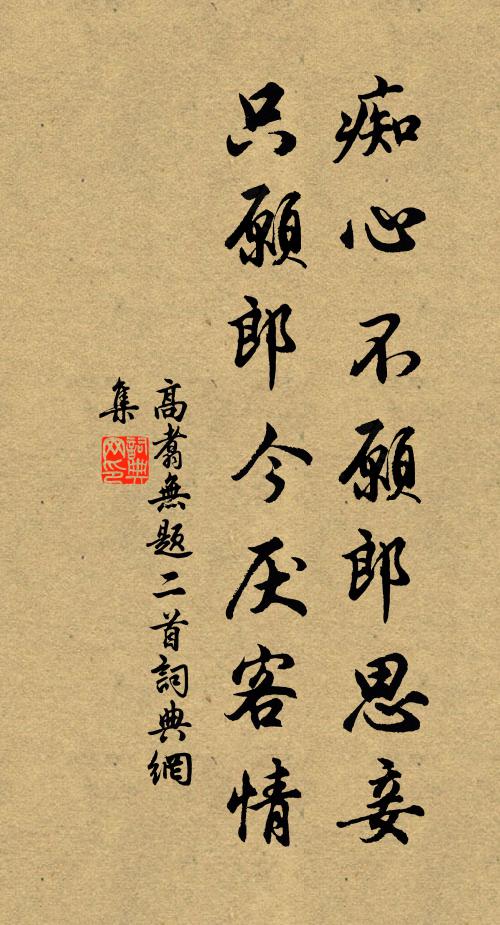 痴心不願郎思妾
只願郎今厌客情
高翥無题二首詞典網
集
詞典
网印